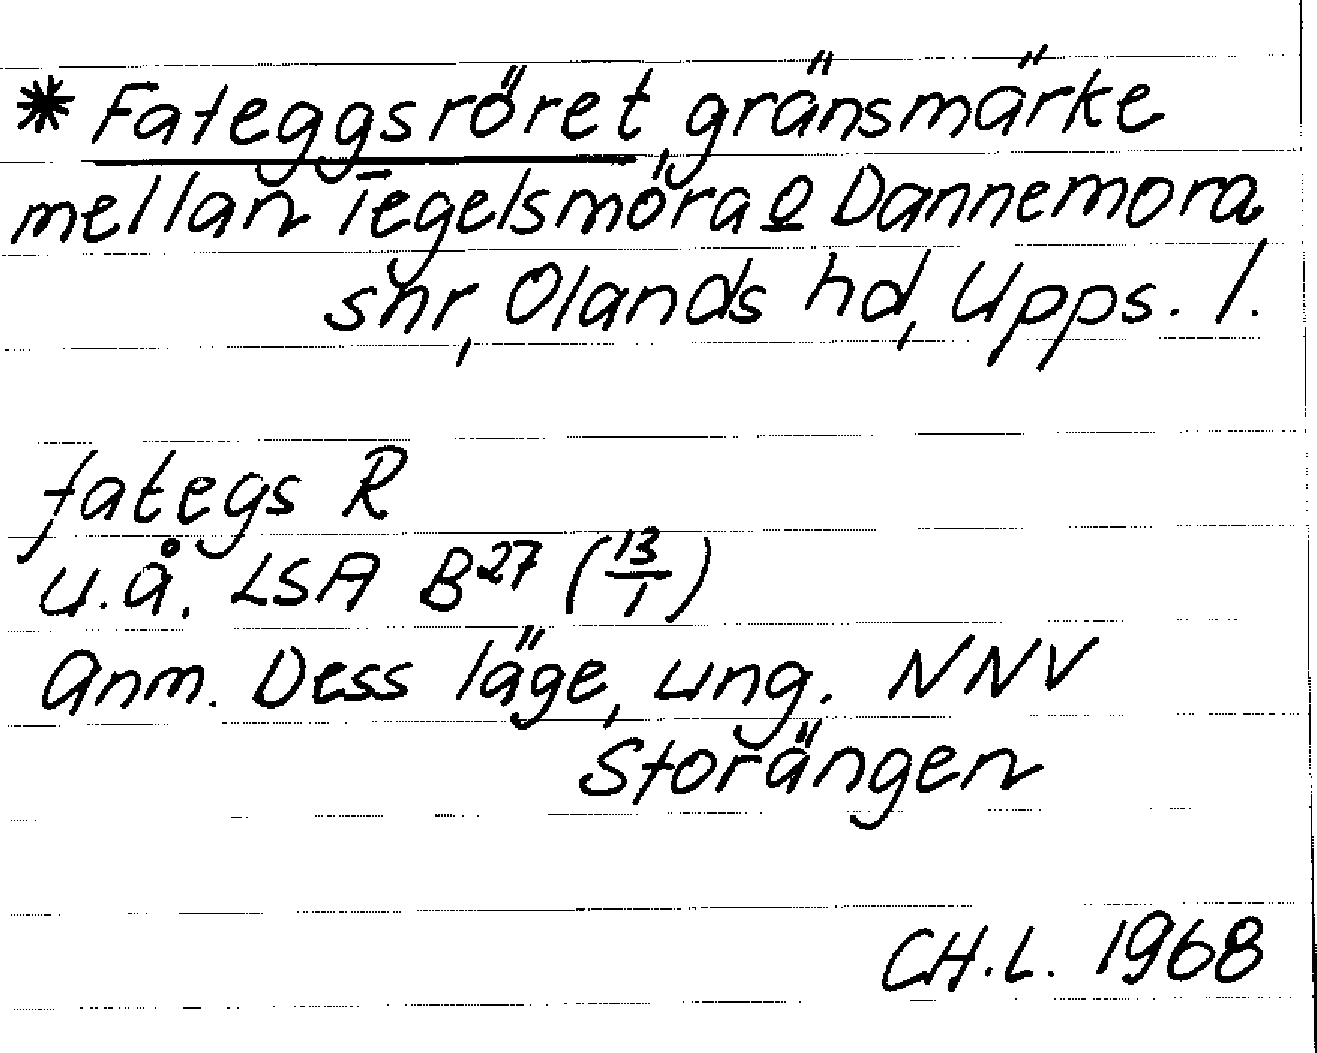 * Fateggsröret, gränsmärke
mellan Tegelsmora o Dannemora
snr, Olands hd, Upps. l.
fategs R
u.å. LSA B27 (13/1)
Anm. Dess läge, ung. NNV
Storängen
CH.L. 1968